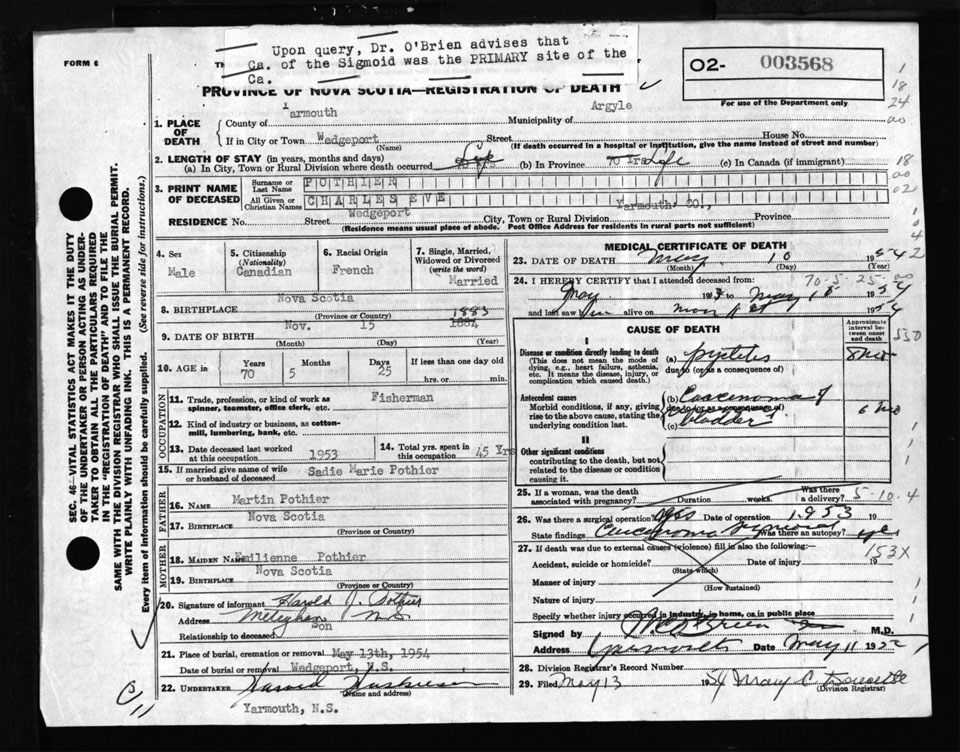 Upon query, Dr. O'Brien advises that
Ca. of the Sigmoid was the PRIMARY site of the
Ca.
FORM 6
O2- 003568
For use of the Department only
PROVINCE OF NOVA SCOTIA—REGISTRATION OF DEATH
1. PLACE OF DEATH
County of Yarmouth Municipality of Argyle
If in City or Town Wedgeport Street House No.
(Name) (If death occurred in a hospital or institution, give the name instead of street and number)
2. LENGTH OF STAY (in years, months and days)
(a) In City, Town or Rural Division where death occurred Life (b) In Province 70 Yrs Life (c) In Canada (if immigrant)
3. PRINT NAME OF DECEASED
Surname or Last Name POTHIER
All Given or Christian Names CHARLES EVE
RESIDENCE No. Street Wedgeport City, Town or Rural Division Yarmouth Co., Province
(Residence means usual place of abode. Post Office Address for residents in rural parts not sufficient)
4. Sex Male
5. Citizenship (Nationality) Canadian
6. Racial Origin French
7. Single, Married, Widowed or Divorced (write the word) Married
8. BIRTHPLACE Nova Scotia
(Province or Country)
9. DATE OF BIRTH Nov. 15 1883 1884
(Month) (Day) (Year)
10. AGE in Years 70 Months 5 Days 25 If less than one day old hrs. or min.
OCCUPATION
11. Trade, profession, or kind of work as spinner, teamster, office clerk, etc. Fisherman
12. Kind of industry or business, as cotton-mill, lumbering, bank, etc.
13. Date deceased last worked at this occupation 1953
14. Total yrs. spent in this occupation 45 Yrs
15. If married give name of wife or husband of deceased Sadie Marie Pothier
FATHER
16. NAME Martin Pothier
17. BIRTHPLACE Nova Scotia
(Province or Country)
MOTHER
18. MAIDEN NAME Emilienne Pothier
19. BIRTHPLACE Nova Scotia
(Province or Country)
20. Signature of informant Harold J. Pothier
Address Meteghan N.S.
Relationship to deceased Son
21. Place of burial, cremation or removal May 13th, 1954
Date of burial or removal Wedgeport, N.S.
22. UNDERTAKER
(Name and address)
Yarmouth, N.S.
MEDICAL CERTIFICATE OF DEATH
23. DATE OF DEATH May 10 1954
(Month) (Day) (Year)
70-5-25
24. I HEREBY CERTIFY that I attended deceased from:
May 1953 to May 10 1954
and last saw him alive on 1954
CAUSE OF DEATH
Approximate interval between onset and death
I
Disease or condition directly leading to death (a) pyelitis
(This does not mean the mode of dying, e.g., heart failure, asthenia, etc. It means the disease, injury, or complication which caused death.)
due to (or as a consequence of)
Antecedent causes (b) Carcinoma of
Morbid conditions, if any, giving rise to the above cause, stating the underlying condition last.
due to (or as a consequence of)
(c) bladder 6 mo
II
Other significant conditions
contributing to the death, but not related to the disease or condition causing it.
25. If a woman, was the death associated with pregnancy? Duration weeks. Was there a delivery?
5-10-4
26. Was there a surgical operation? Yes Date of operation 1953 19
State findings Carcinoma sigmoid Was there an autopsy? yes
153X
27. If death was due to external causes (violence) fill in also the following:—
Accident, suicide or homicide Date of injury 19
(State which)
Manner of injury
(How sustained)
Nature of injury
Specify whether injury occurred in industry, in home, or in public place
Signed by O'Brien M.D.
Address Yarmouth Date May 11 19
28. Division Registrar's Record Number
29. Filed May 13 1954 Mary C Doucette
(Division Registrar)
SEC. 46—VITAL STATISTICS ACT MAKES IT THE DUTY
OF THE UNDERTAKER OR PERSON ACTING AS UNDER-
TAKER TO OBTAIN ALL THE PARTICULARS REQUIRED
IN THE "REGISTRATION OF DEATH" AND TO FILE THE
SAME WITH THE DIVISION REGISTRAR WHO SHALL ISSUE THE BURIAL PERMIT.
WRITE PLAINLY WITH UNFADING INK. THIS IS A PERMANENT RECORD.
Every item of information should be carefully supplied. (See reverse side for instructions.)